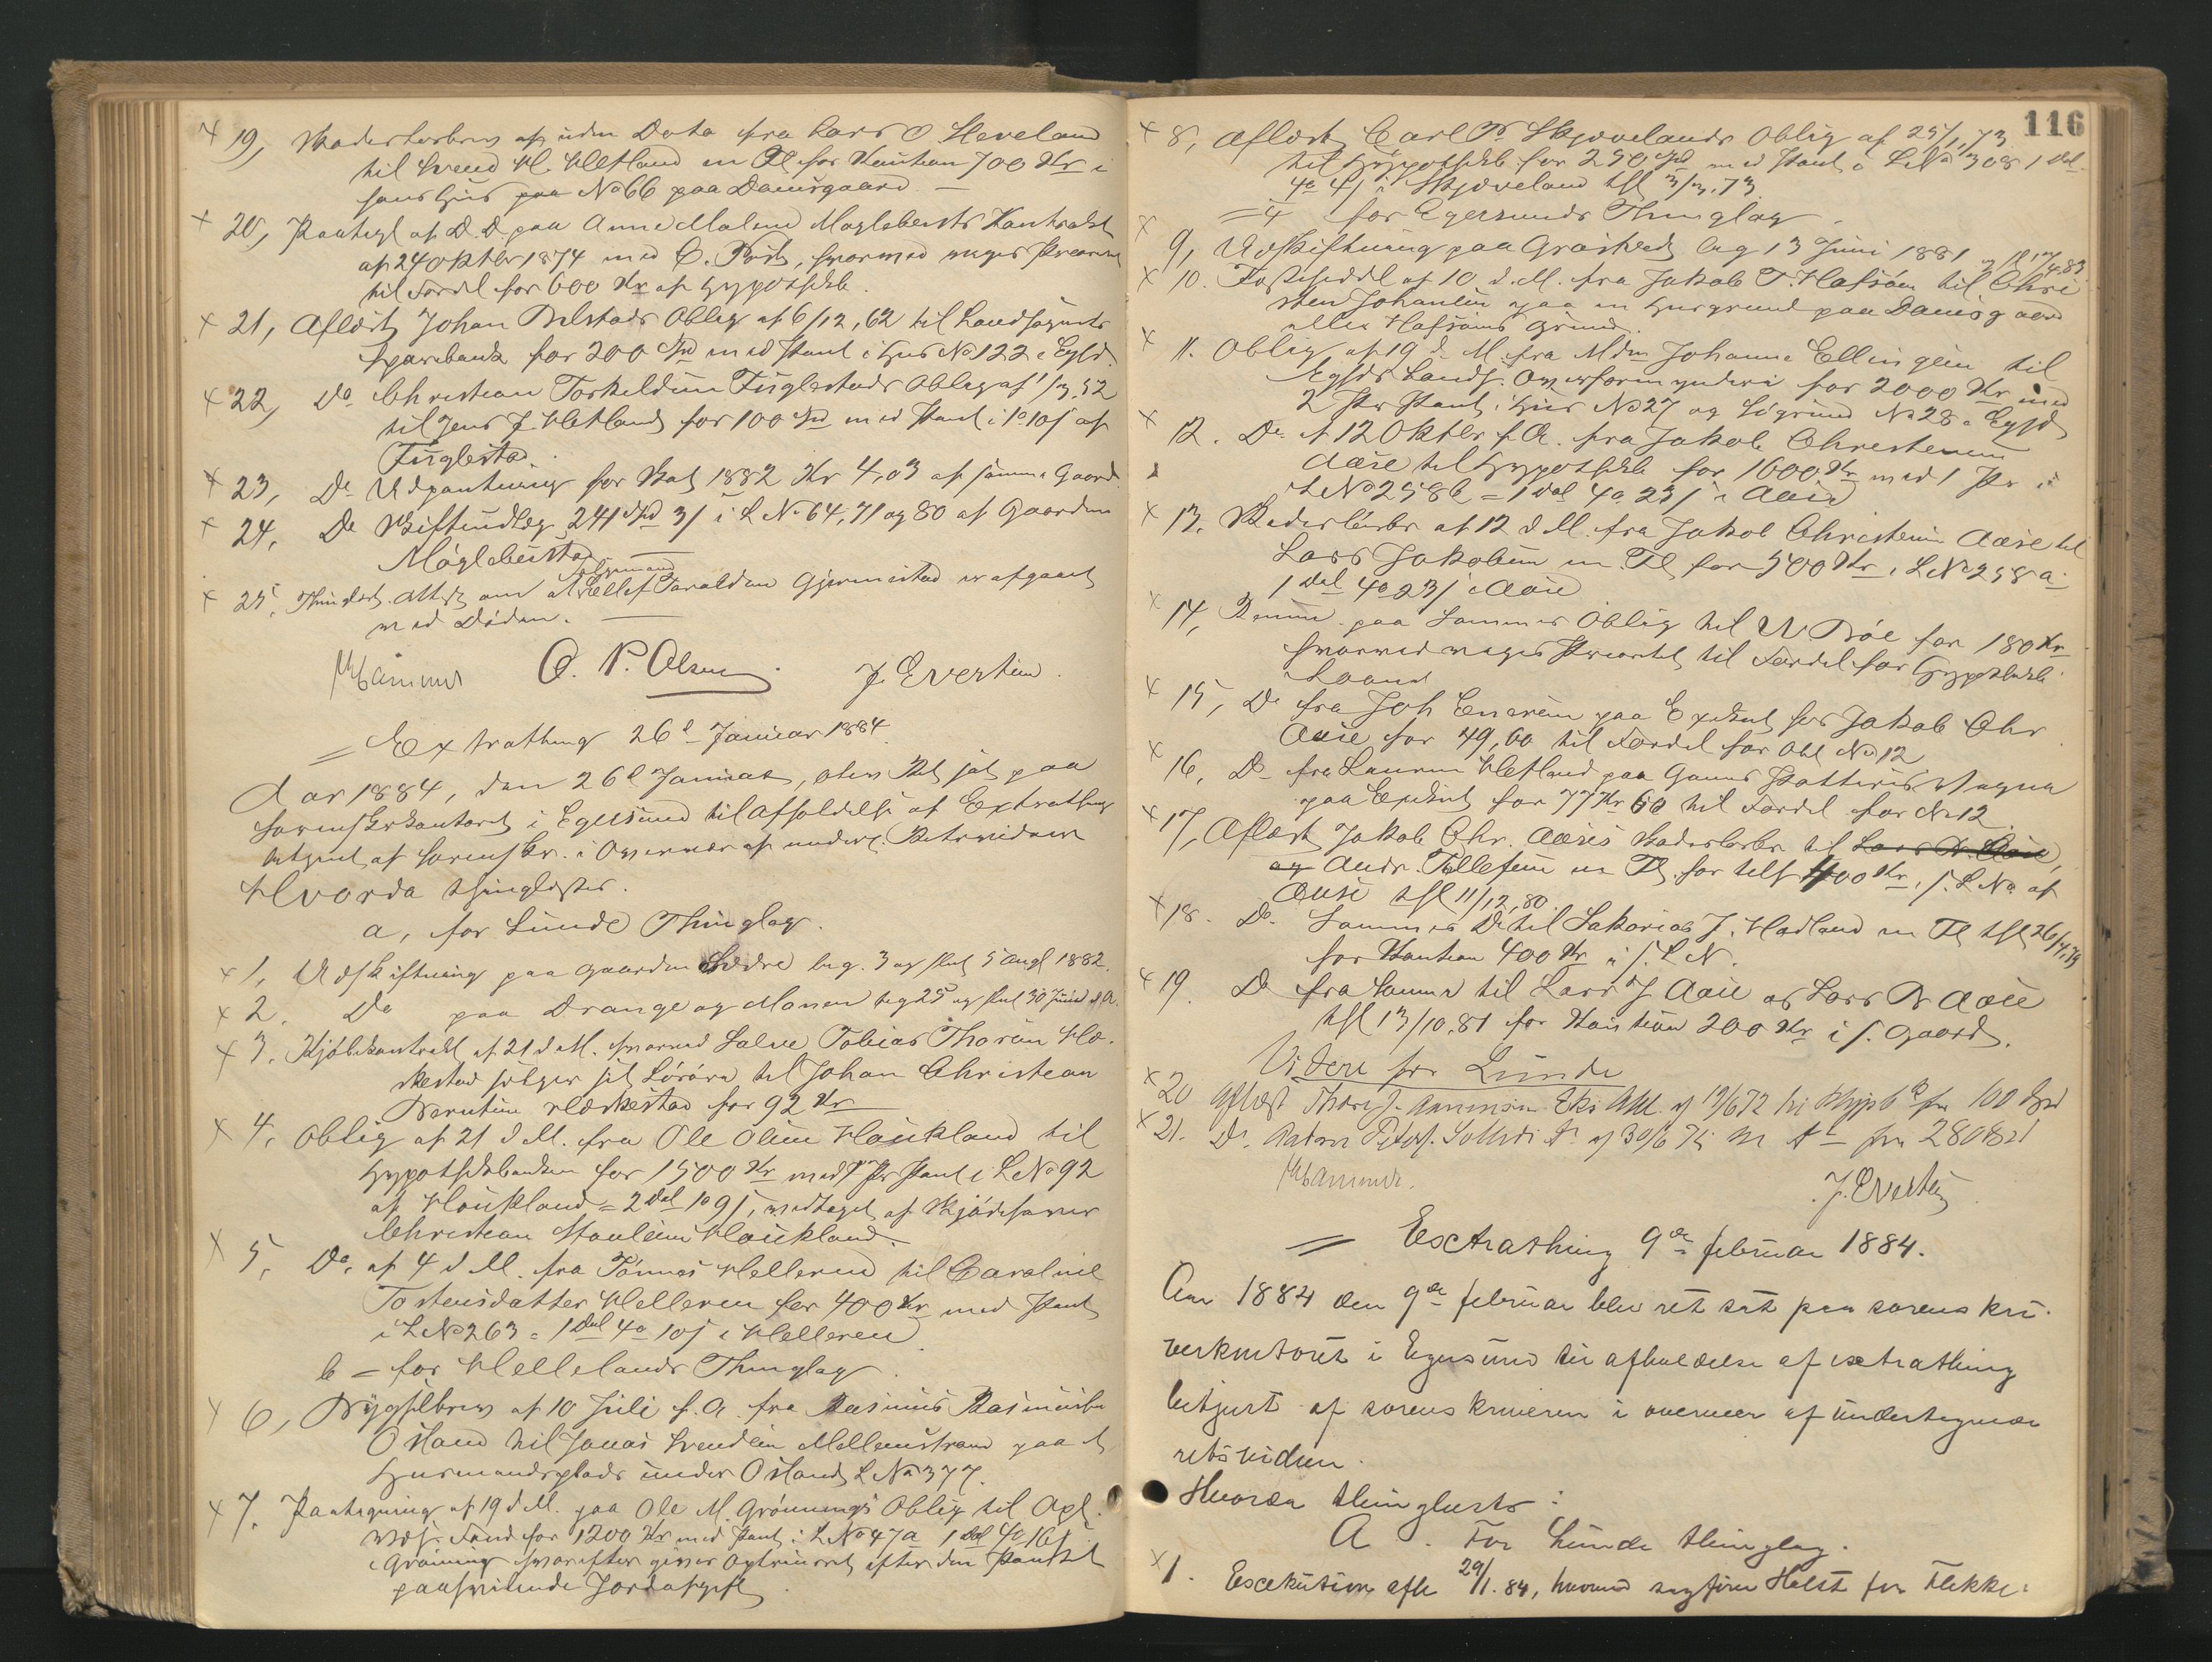 19, Skadesløsbrev af uden Dato fra Lars O Heveland
til Svend H. Hetland m Fl for Kaution 700 Kr i
hans Hus paa No 66 paa Damsgaard
20, Paategl af D. D paa Anne Malene Møglebusts Kontrakt
af 24 Oktbr 1874 med C. , hvormed viges Prioritet
til Fordel for 600 Kr af Hypothkb.
21, Aflæst Johan Bilstads Oblig af 6/12, 62 til
Sparebank for 200 Spd med Pant i Hus No 122 i Egsd.
22, Do Christian Torkeldsen Fuglestads Oblig af 1/3, 52
til Jens J. Hetland for 100 Spd med Pant i 1o 10 af
Fuglestad.
23, Do Udpantning for Skat 1882 Kr 4,03 af samme Gaard.
24, Do Skiftendlæg 241 Spd 3/ i L No 64, 71 og 80 af Gaarden
Møglebustad
25. Thinglæst Attest om at Følgemand Tellef Taraldsen Gjermestad er afgaaet
med Døden.
Hammer O. P. Olsen. J. Evertsen.
= Extrathing 26de Januar 1884.
Aar 1884, den 26de Januar, blev Ret sat paa
Sorenskrkontoret i Egersund til Afholdelse af Extrathing
betjent af Sorenskr. i Overvær af undert. Retsvidner
Hvorda thinglæstes.
a, for Lunde Thinglag.
1, Udskiftning paa Gaarden beg. 3 og slut 5 Augt 1882.
2. Do paa Drange og Monen beg 25 og slut 30 Juni d. A.
3. Kjøbekontrakt af 21 d M. hvorved Salve Tobias Thorsen Hæ-
skestad sælger sit til Johan Christian
Berntsen Hæskestad for 92 Kr
4, Oblig af 21 d M. fra Ole Olsen Haukland til
Hypothekbanken for 1500 Kr med 1 Pr Pant i L No 92
af Haukland = 2 Dal 1o 9/, vedtaget af Skjødehaver
Christian Haukland.
5, Do. af 4 d M. fra Tønnes Helleren til Caroline
Tostensdatter Helleren for 400 Kr med Pant
i L No 263 = 1 Dal 4o 10/ i Helleren
b = for Hellelands Thinglag
6, Bygselbrev af 10 Juli f. A. fra Rasmus Rasmussen
Østland til Jonas Svendsen Mellemstrand paa et
Husmandsplads under Østland L No 377.
7. Paategning af 19 d M. paa Ole M. Grønnings Oblig til Opl.
Fond for 1200 Kr med Pant i L No 47a 1 Dal 4o 16/
i Grøning hvorefter gives Opt. efter den Pantet
paahvilende Jordafgift
116
8, Aflæst Carl P Skjævelands Oblig af 25/1, 73
til Hypothkb for 250 Spd med Pant i L No 308 1 Dal
4o 4/ i Skjæveland thl 3/3, 73
= for Egersunds Thinglag.
9, Udskiftning paa Graastveit beg 13 Juni 1881 og sl 17/4 83
10. Festeseddel af 10 d. M. fra Jakob T. Hafsøen til Chri
sten Johansen paa en Husgrund paa Damsgaard
eller Hafsøens Grund.
11. Oblig af 19 d M. fra Mdm Johanne Ellingsen til
Egsds Landsg. Overformynderi for 2000 Kr med
2 Pr Pant i Hus No 27 og Søgrund No 28 i Egsd
12. Do af 12 Oktbr f. A. fra Jakob Christensen
Aase til Hypothkb for 1600 Kr med 1 Pr i
L No 258b = 1 Dal 4o 23/ i Aase
13, Skadesløsbr af 12 d M. fra Jakob Christensen Aase til
Lars Jakobsen m. Fl for 500 Kr i L No 258a
1 Dal 4o 23/ i Aase
14, paa Sammes Oblig til N Bøe for 180 Kr
hvormed viges Prioritet til Fordel for Hypothekb
Laanet
15, Do fra Joh Enersen paa Exekut hos Jakob Chr
Aase for 49,60 til Fordel for Obl No 12
16, Do fra Hetland paa Gunnar
paa Exekut for 77 Kr 60 til Fordel for No 12
17, Aflæst Jakob Chr. Aases Skadesløsbr til Lars
og Andr. Tollefsen m. Fl. for tils 400 Kr. i s. L No af
Aase thl 11/12, 80.
18. Do Sammes Do til Sakarias J. Hadland m Fl thl 26/4, 79
for Kaution 400 Kr i s. L N.
19. Do fra Samme til Lars J Aase og Lars B Aase
thl 13/10, 81 for Kaution 200 Kr i s. Gaard.
Videre for Lunde
20 Aflæst Thore J. Obl. af 19/6 72 til Hypb for 100 Spd
21. Do. Do af 30/6 75 til do for 280 Spd
Hammer. J. Evertsen
= Extrathing 9de februar 1884.
Aar 1884 den 9de februar blev ret sat paa sorenskri-
verkontoret i Egersund til afholdelse af extrathing
betjent af sorenskriveren i overvær af undertegnede
retsvidner.
Hvorda thinglæstes:
A. For Lunde thinglag.
1. Execution afh 29/1. 84, hvorved sagfører Holst for Flekke-